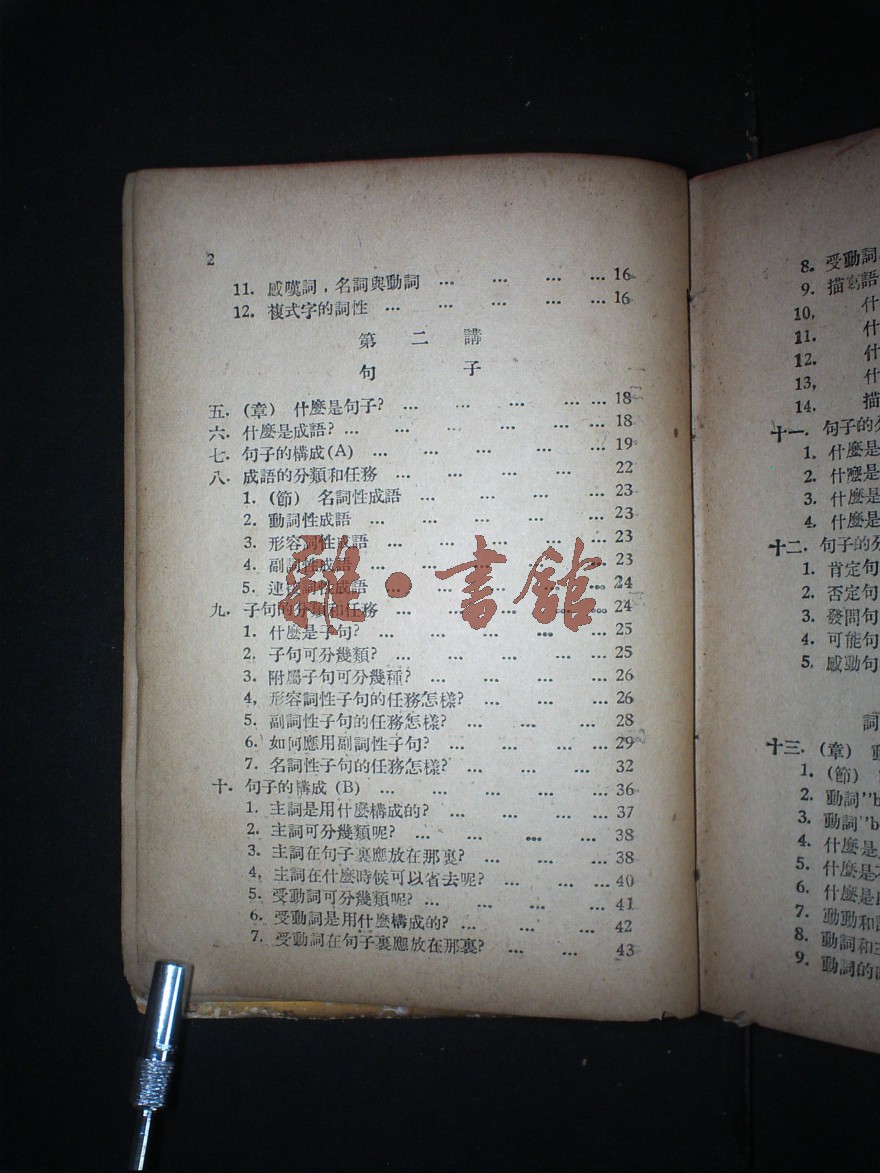 2
11. 感嘆詞，名詞與動詞 … … … … 16
12. 複式字的詞性 … … … … … 16
第二講
句子
五. (章) 什麼是句子? … … … … … 18
六. 什麼是成語? … … … … … 18
七. 句子的構成(A) … … … … … 19
八. 成語的分類和任務 … … … … 22
1. (節) 名詞性成語 … … … … 23
2. 動詞性成語 … … … … … 23
3. 形容詞性成語 … … … … … 23
4. 副詞性成語 … … … … … 23
5. 連接詞性成語 … … … … … 24
九. 子句的分類和任務 … … … … … 24
1. 什麼是子句? … … … … … 25
2. 子句可分幾類? … … … … 25
3. 附屬子句可分幾種? … … … … 26
4, 形容詞性子句的任務怎樣? … … … 26
5. 副詞性子句的任務怎樣? … … … 28
6. 如何應用副詞性子句? … … … … 29
7. 名詞性子句的任務怎樣? … … … 32
十. 句子的構成 (B) … … … … … 36
1. 主詞是用什麼構成的? … … … … 37
2. 主詞可分幾類呢? … … … … 38
3. 主詞在句子裏應放在那裏? … … … 38
4, 主詞在什麼時候可以省去呢? … … … 40
5. 受動詞可分幾類呢? … … … … 41
6. 受動詞是用什麼構成的? … … … 42
7. 受動詞在句子裏應放在那裏? … … 43
雜·書館
8. 受動詞
9. 描寫語
10, 什
11. 什
12. 什
13, 什
14. 描
十一. 句子的分
1. 什麼是
2. 什麼是
3. 什麼是
4. 什麼是
十二. 句子的分
1. 肯定句
2. 否定句
3. 發問句
4. 可能句
5. 感動句
詞
十三. (章) 動
1. (節)
2. 動詞"b
3. 動詞"b
4. 什麼是
5. 什麼是不
6. 什麼是
7. 動動和
8. 動詞和主
9. 動詞的